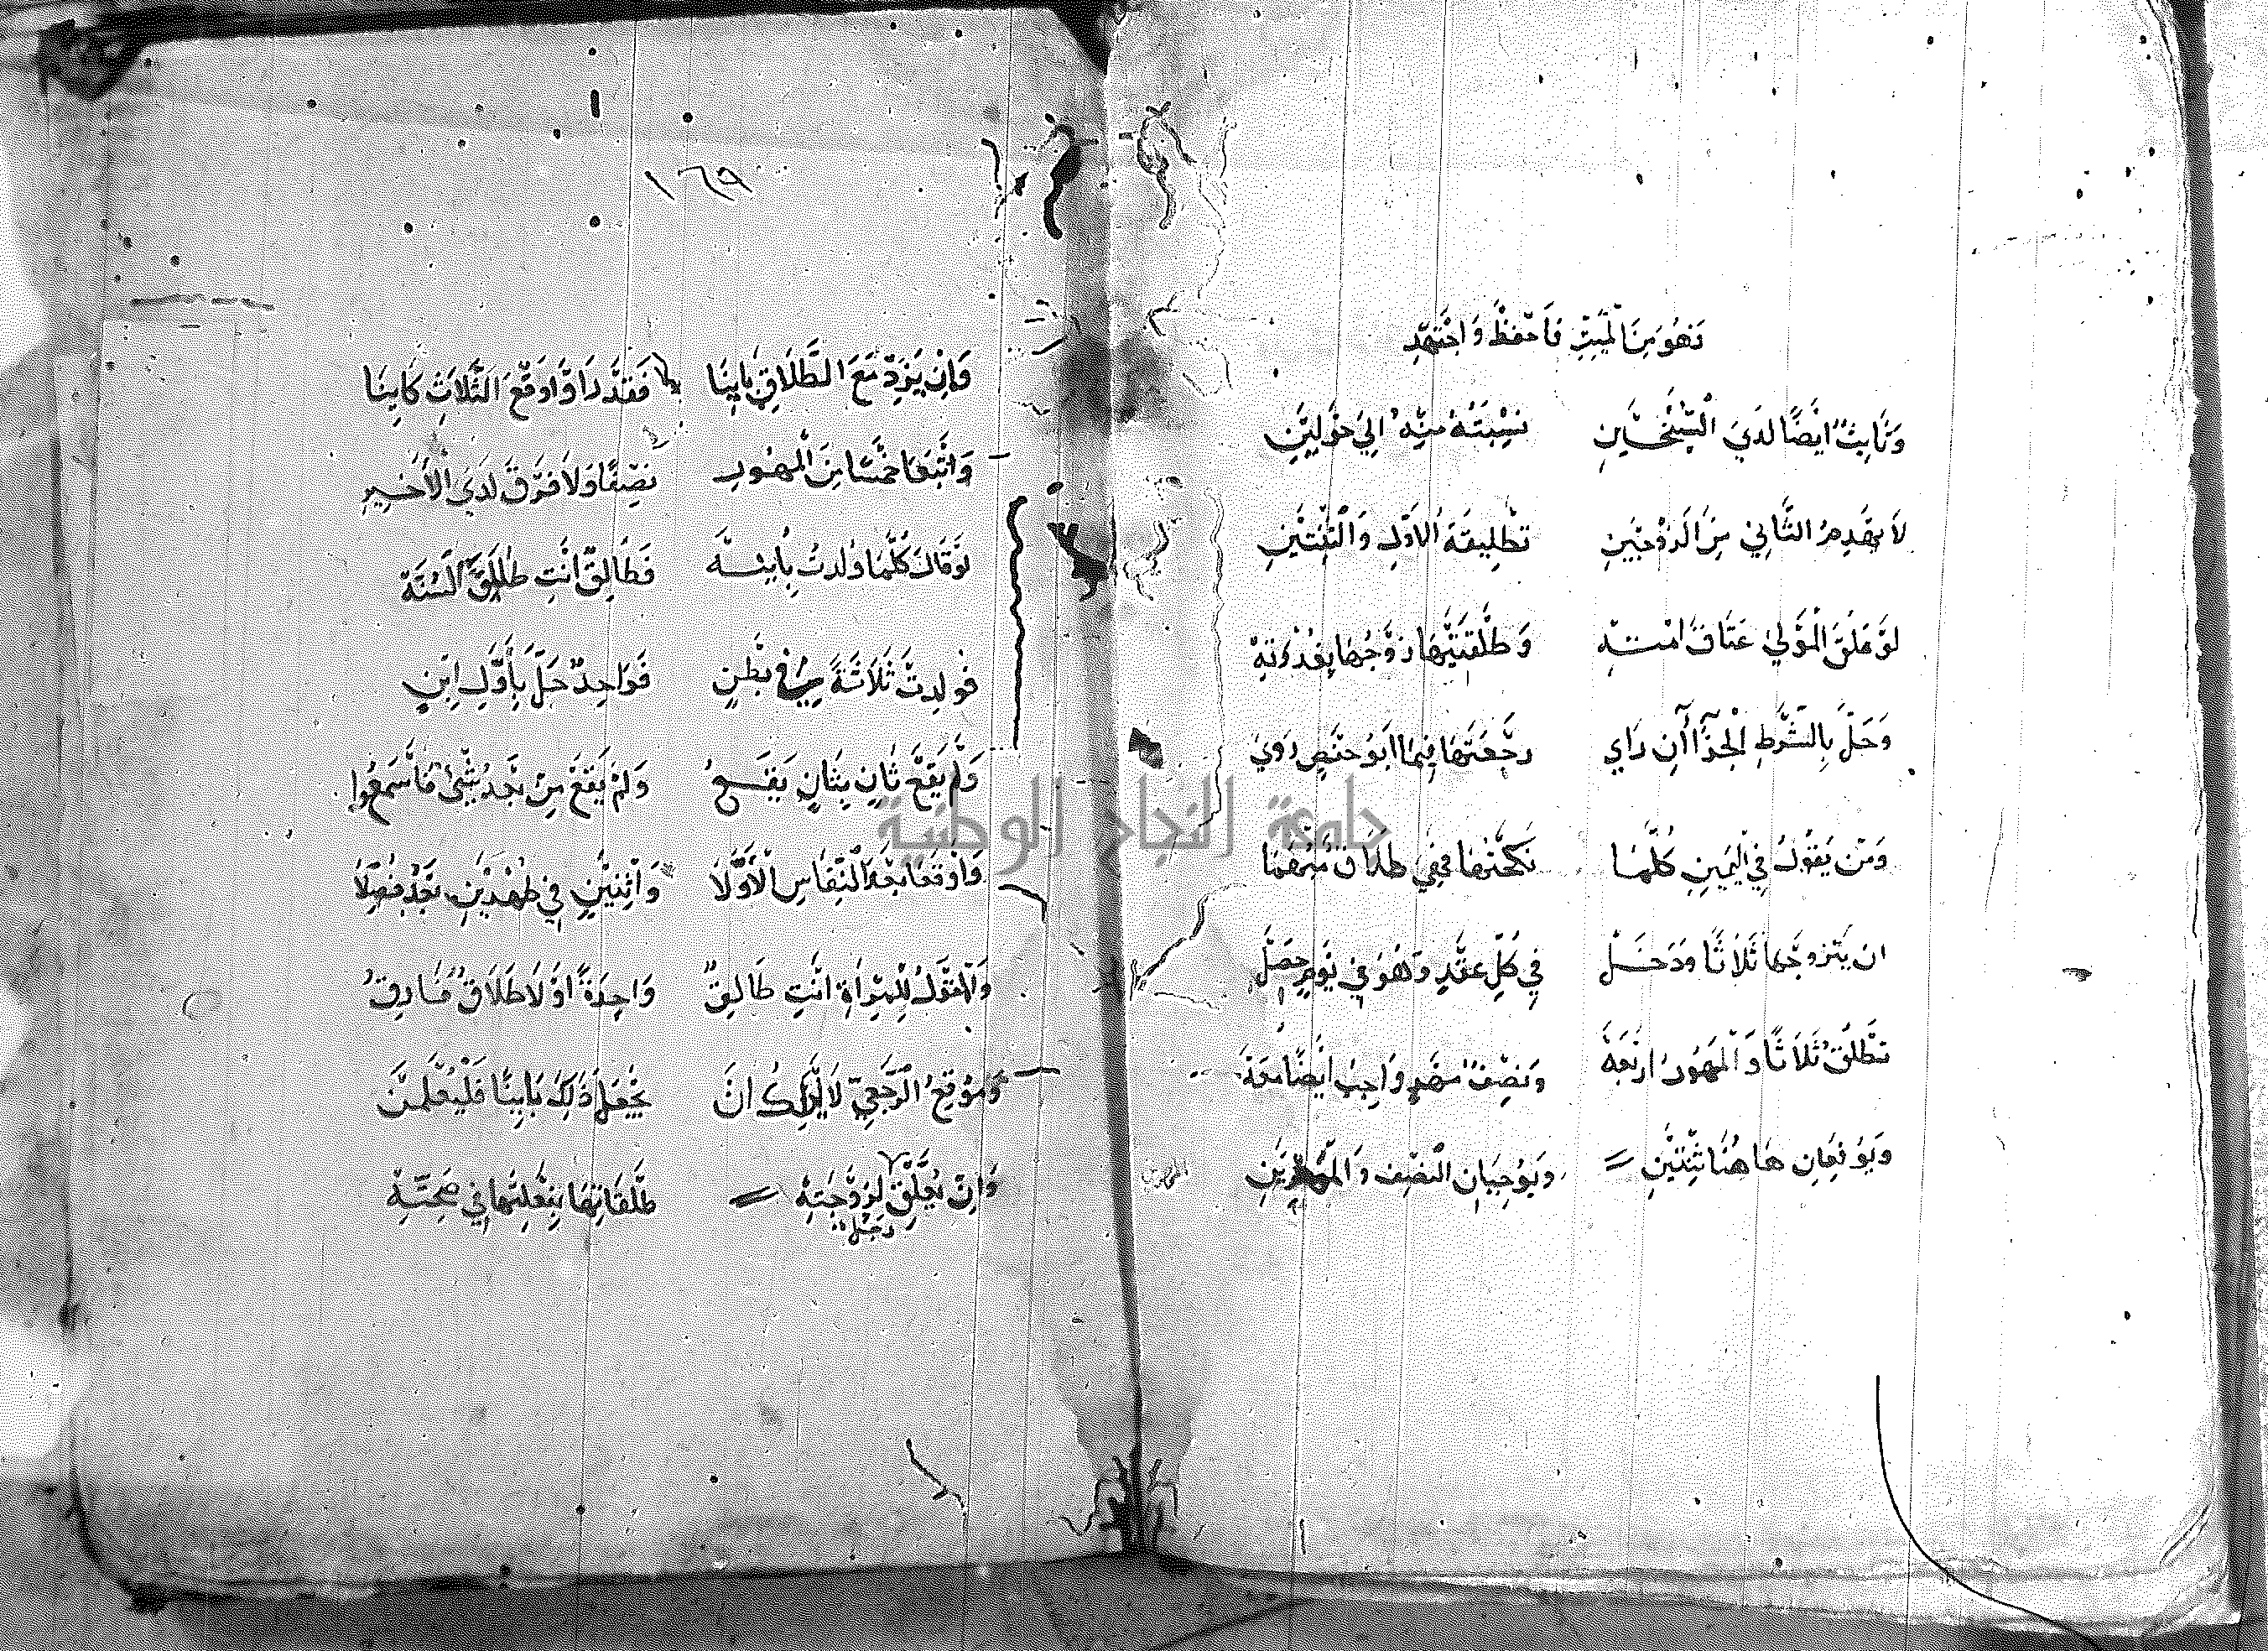 فَهُوَ مِنَ الْمَيْتِ فَاحْفَظْ وَاجْتَهِدِ
وَثَابِتٌ اَيْضًا لَدَى الشَّيْخَيْنِ نِسْبَتُهُ مِنْهُ اِلَى حَوْلَيْنِ
لَا يَهْدِمُ الثَّانِي مِنَ الزَّوْجَيْنِ تَطْلِيقَةَ الْاَوَّلِ وَالثِّنْتَيْنِ
لَوْ عَلَّقَ الْمَوْلَى عَتَاقَ اَمَتِهِ وَطَلْقَتَيْهَا زَوْجُهَا بِعُذْرَتِهْ
وَحَلَّ بِالشَّرْطِ الْجَزَاآنِ رَاى رَجْعَتَهَا فِيمَا اَبُو حَفْصٍ رَوَى
وَمَنْ يَقُولُ فِي الْيَمِينِ كُلَّمَا نَكَحْتُهَا فَفِي طَلَاقٍ
اِنْ يَتَزَوَّجْهَا ثَلَاثًا وَدَخَلْ فِي كُلِّ عَقْدٍ وَهُوَ فِي يَوْمٍ حَصَلْ
تَطْلُقُ ثَلَاثًا وَالْمُهُورُ اَرْبَعَهْ وَنِصْفُ مَهْرٍ وَاجِبٌ اَيْضًا مَعَهْ
وَيُوقِعَانِ هَاهُنَا ثِنْتَيْنِ وَيُوجِبَانِ النِّصْفَ وَالْمَهْرَيْنِ
١٦٩
وَاِنْ يَزِدْ مَعَ الطَّلَاقِ بَايِنَا فَقَدْ رَاَوْا وَقْعَ الثَّلَاثِ كَايِنَا
وَاَتْبَعَا خَمْسًا مِنَ الْمُهُورِ نِصْفًا وَلَا فَرْقَ لَدَى الْاَخِيرِ
لَوْ قَالَ كُلَّمَا وَلَدْتُ بِابْنَهْ فَطَالِقٌ اَنْتِ طَلَاقَ السُّنَّهْ
فَوَلَدَتْ ثَلَاثَةً فِي بَطْنٍ فَوَاحِدٌ حَلَّ بِاَوَّلِ ابْنٍ
وَلَمْ يَقَعْ ثَانٍ بِثَانٍ يَقَعُ وَلَمْ يَقَعْ مِنْ بَعْدُ شَيْءٌ فَاسْمَعُوا
وَاَوْقَعَا بَعْدَ النِّفَاسِ الْاَوَّلَا وَاثْنَيْنِ فِي طُهْرَيْنِ بَعْدُ فَصَّلَا
الْقَوْلُ لِلْمَرْاَةِ اَنْتِ طَالِقٌ وَاحِدَةً اَوْ لَا طَلَاقٌ فَارِقُ
وَمُوقِعُ الرَّجْعِيِّ لَا يَمْلِكُ اَنْ يَجْعَلَ ذَلِكَ بَايِنًا فَلْيُعْلَمَنْ
وَاِنْ يُعَلِّقْ لِزَوْجَتِهْ طَلْقَاتِهَا بِفِعْلِهَا فِي صِحَّتِهْ
رَجُلٌ
جامعة النجاح الوطنية